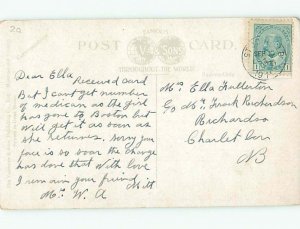 20
FAMOUS
POST CARD.
& SONS
THROUGHOUT THE WORLD
Dear Ella
Received Card
But I cant get number
of medican as the girl
has gone to Boston but
will get it as soon as
she returnes. Sory you
face is so soor the change
has done that With love
I remain your friend
Mrs W. A
Mrs Ella Fullerton
C/o Mrs Frank Richardson
Richardson
Charlet Co
NB